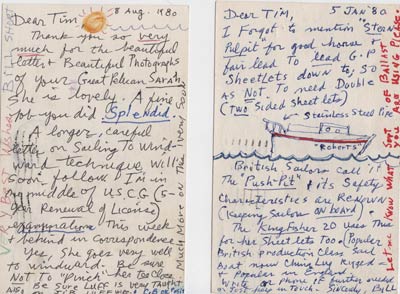 8 Aug. 1980
Dear Tim,
Thank you so very
much for the beautiful
letter & Beautiful Photographs
of your Great Pelican Sarah.
She is lovely. A fine
job you did Splendid.
A longer, careful
letter on Sailing To Wind-
ward technique will
soon follow. I'm in
middle of U.S.C.G. (5-
year Renewal of License)
examinations This week
behind in correspondence
Yes, She goes very well
to windward. Be sure
Not To "Pinch" her Too Close
Be Sure Luff is very Taught
Much More on This very Soon
5 JAN '80
Dear Tim,
I Forgot to mention "Stern
Pulpit for good house &
fair lead To lead G.P.
Sheetlets down to, SO
As Not To need Double
(Two Sided Sheetlets)
Stainless Steel Pipe
"Roberts"
British Sailors Call it
The "Push-Pit" its Safety
Characteristics are RENOWN
(Keeping Sailors on board).
The Kingfisher 20 uses This
for her Sheetlets Too (Popular
British production Class Sail
Boat now Chinese Rigged
& Popular in England.
Write or phone if further need
Sincerely, Bill
Let me Know WHAT
Sort of Ballast
You ARE Using Please.